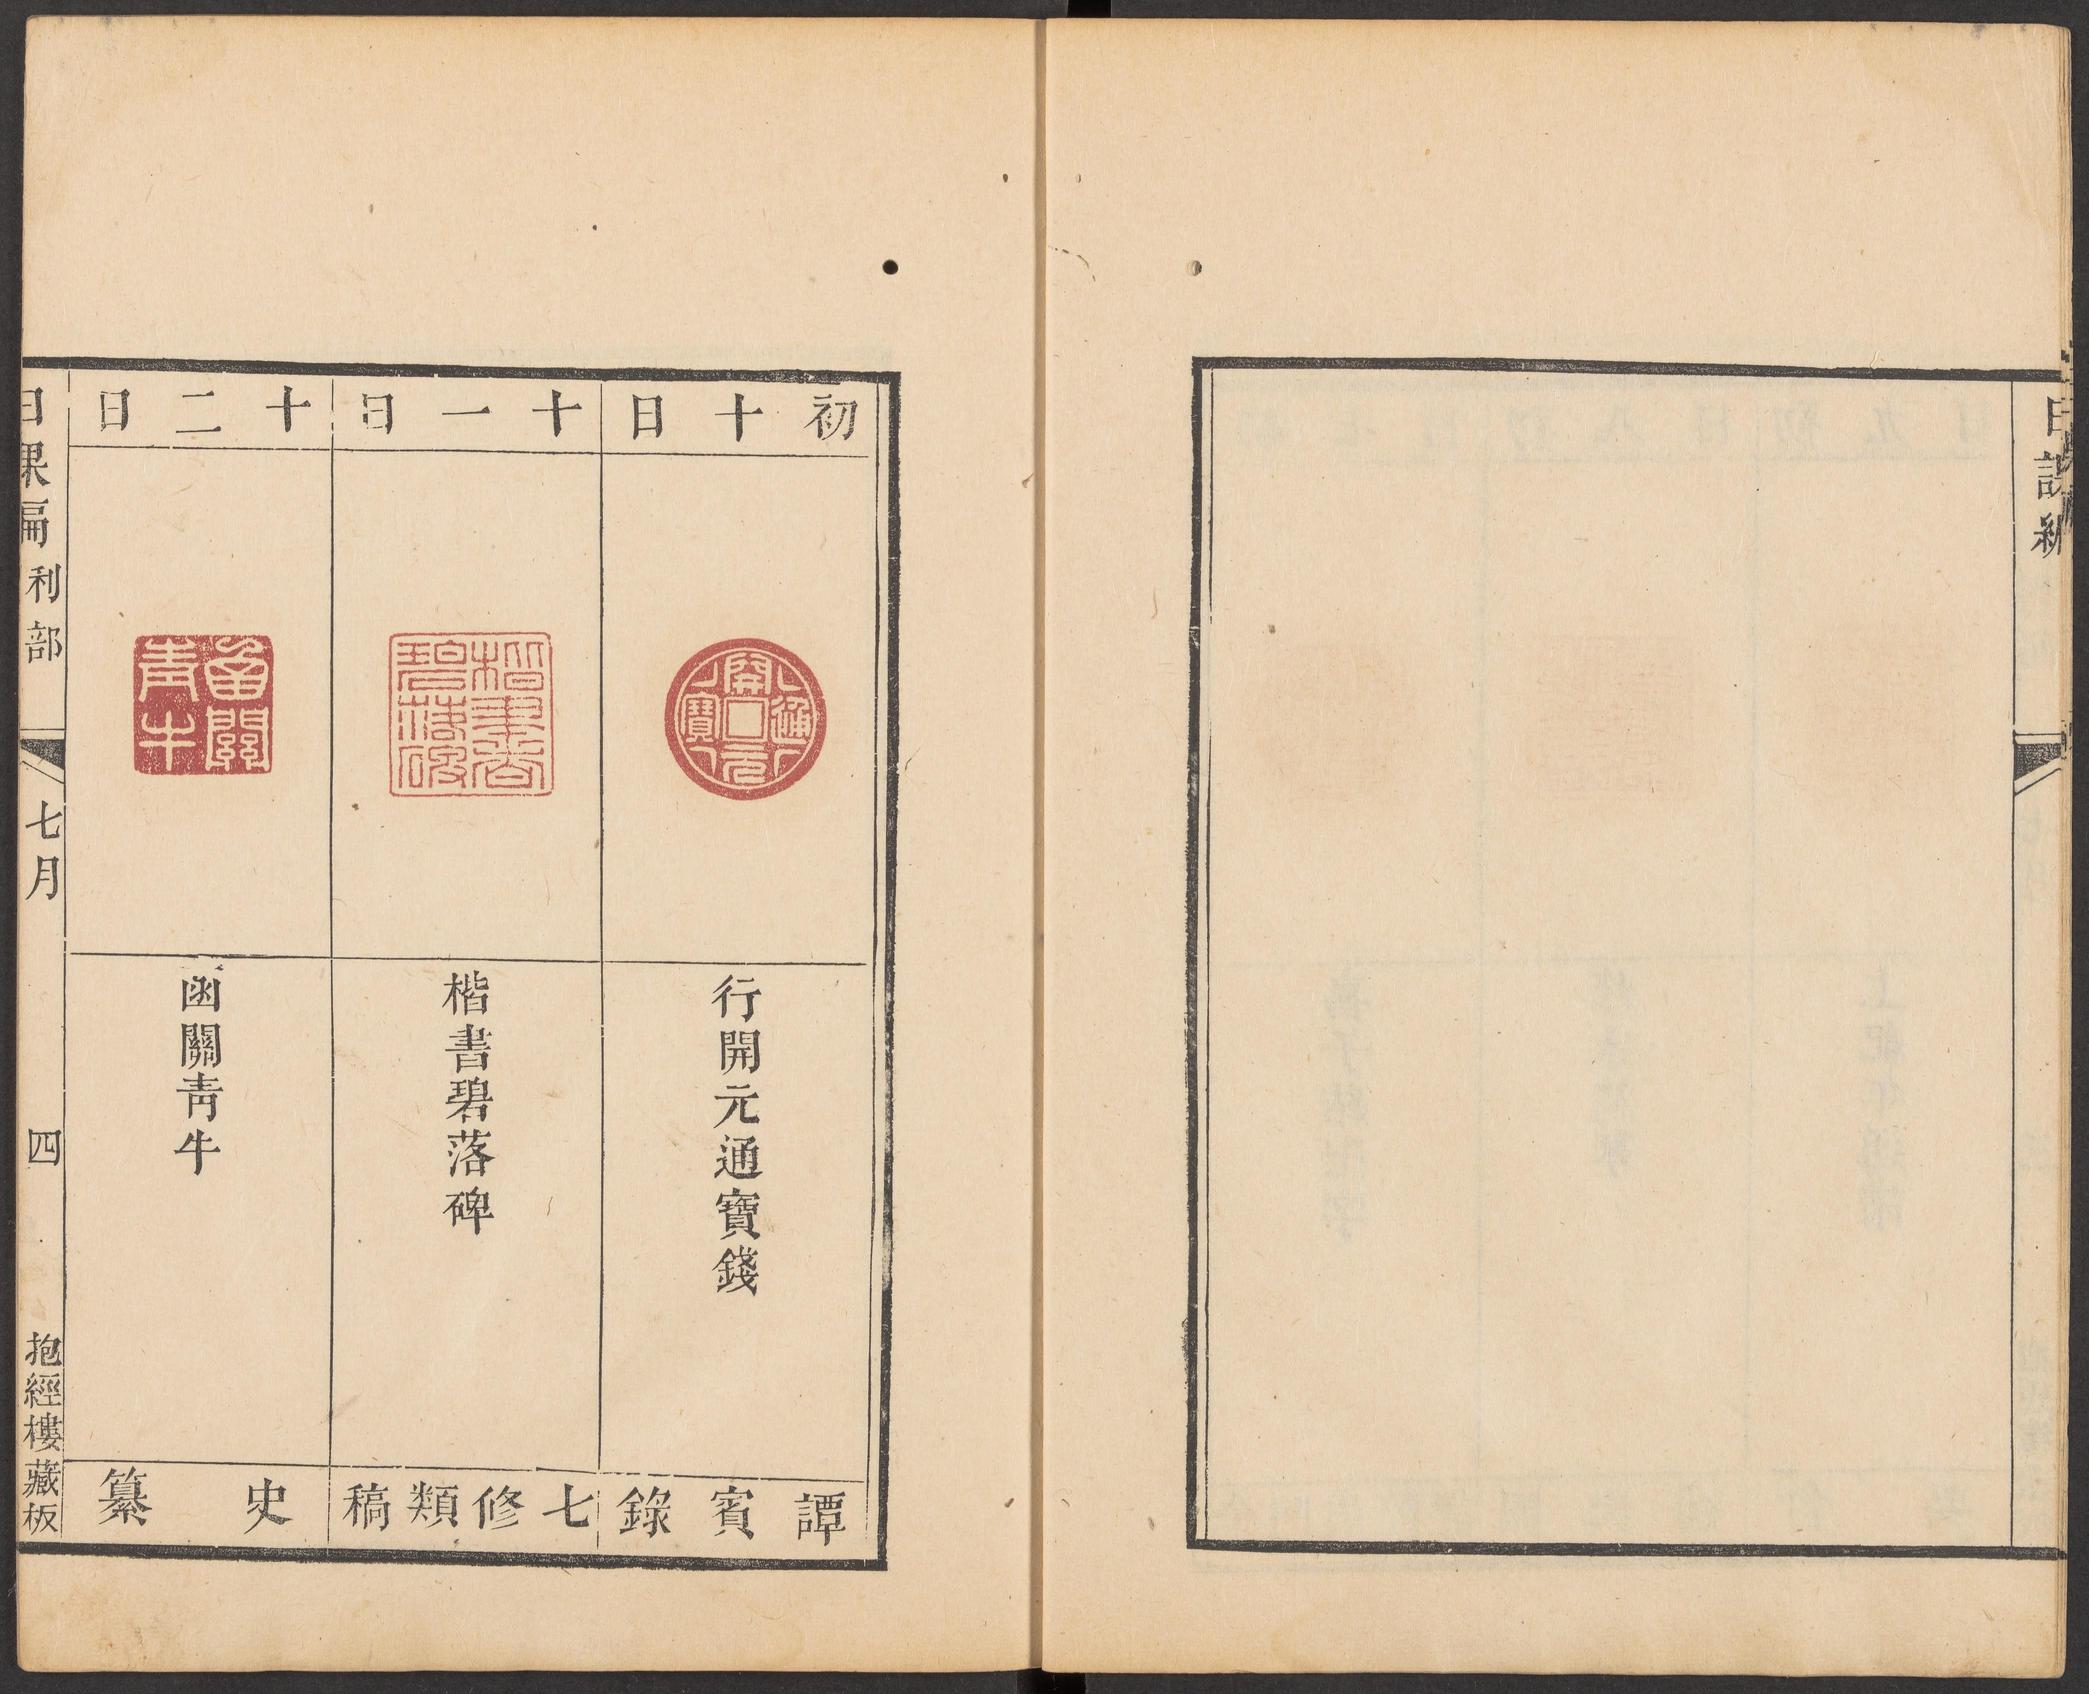 日課編
初十日
開元通寶
行開元通寶錢
譚賓錄
十一日
楷書碧落碑
楷書碧落碑
七修類稿
十二日
函關青牛
函關青牛
史纂
日課編 利部 七月 四 抱經樓藏板